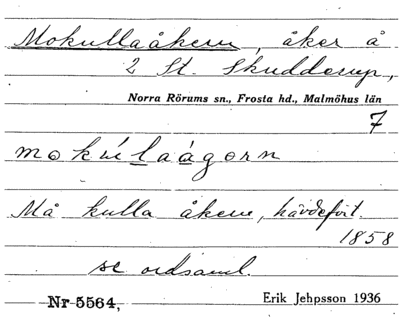 Mokullaåkern, åker å
2 St. Skudderup,
Norra Rörums sn., Frosta hd., Malmöhus län
7
mokúlaágorn
Må kulla åkern, hävdefört.
1858
se ordsaml.
Nr 5564,
Erik Jehpsson 1936